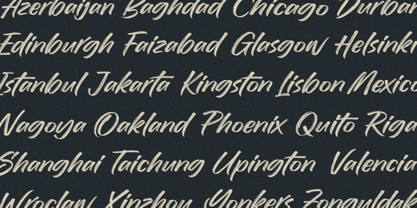 Azerbaijan Baghdad Chicago Durban
Edinburgh Faizabad Glasgow Helsinki
Istanbul Jakarta Kingston Lisbon Mexico
Nagoya Oakland Phoenix Quito Riga
Shanghai Taichung Upington Valencia
Wroclaw Xinzhou Yonkers Zonguldak